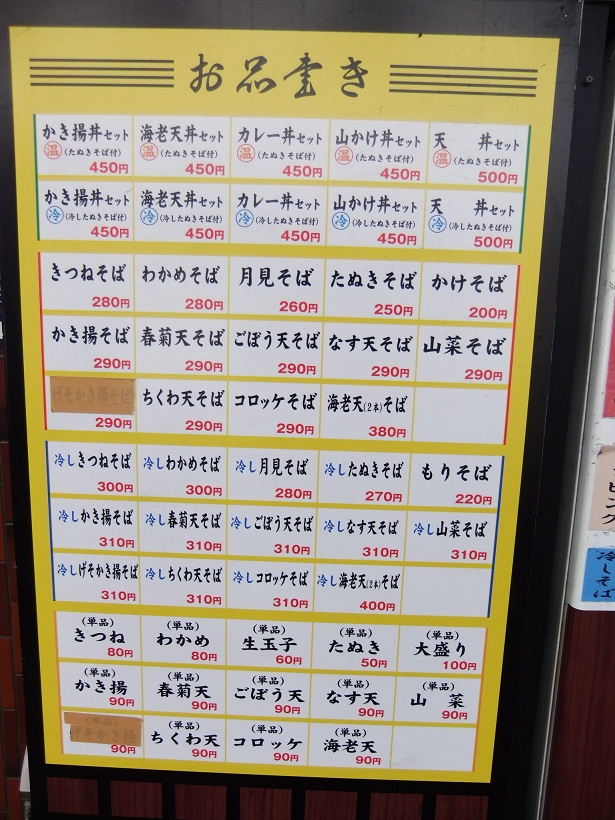 お品書き
かき揚丼セット 海老天丼セット カレー丼セット 山かけ丼セット 天 丼セット
温(たぬきそば付) 温(たぬきそば付) 温(たぬきそば付) 温(たぬきそば付) 温(たぬきそば付)
450円 450円 450円 450円 500円
かき揚丼セット 海老天丼セット カレー丼セット 山かけ丼セット 天 丼セット
冷(冷したぬきそば付) 冷(冷したぬきそば付) 冷(冷したぬきそば付) 冷(冷したぬきそば付) 冷(冷したぬきそば付)
450円 450円 450円 450円 500円
きつねそば わかめそば 月見そば たぬきそば かけそば
280円 280円 260円 250円 200円
かき揚そば 春菊天そば ごぼう天そば なす天そば 山菜そば
290円 290円 290円 290円 290円
げそかき揚そば ちくわ天そば コロッケそば 海老天(2本)そば
290円 290円 290円 380円
冷しきつねそば 冷しわかめそば 冷し月見そば 冷したぬきそば もりそば
300円 300円 280円 270円 220円
冷しかき揚そば 冷し春菊天そば 冷しごぼう天そば 冷しなす天そば 冷し山菜そば
310円 310円 310円 310円 310円
冷しげそかき揚そば 冷しちくわ天そば 冷しコロッケそば 冷し海老天(2本)そば
310円 310円 310円 400円
(単品) (単品) (単品) (単品) (単品)
きつね わかめ 生玉子 たぬき 大盛り
80円 80円 60円 50円 100円
(単品) (単品) (単品) (単品) (単品)
かき揚 春菊天 ごぼう天 なす天 山 菜
90円 90円 90円 90円 90円
(単品) (単品) (単品) (単品)
げそかき揚 ちくわ天 コロッケ 海老天
90円 90円 90円 90円
冷しそば